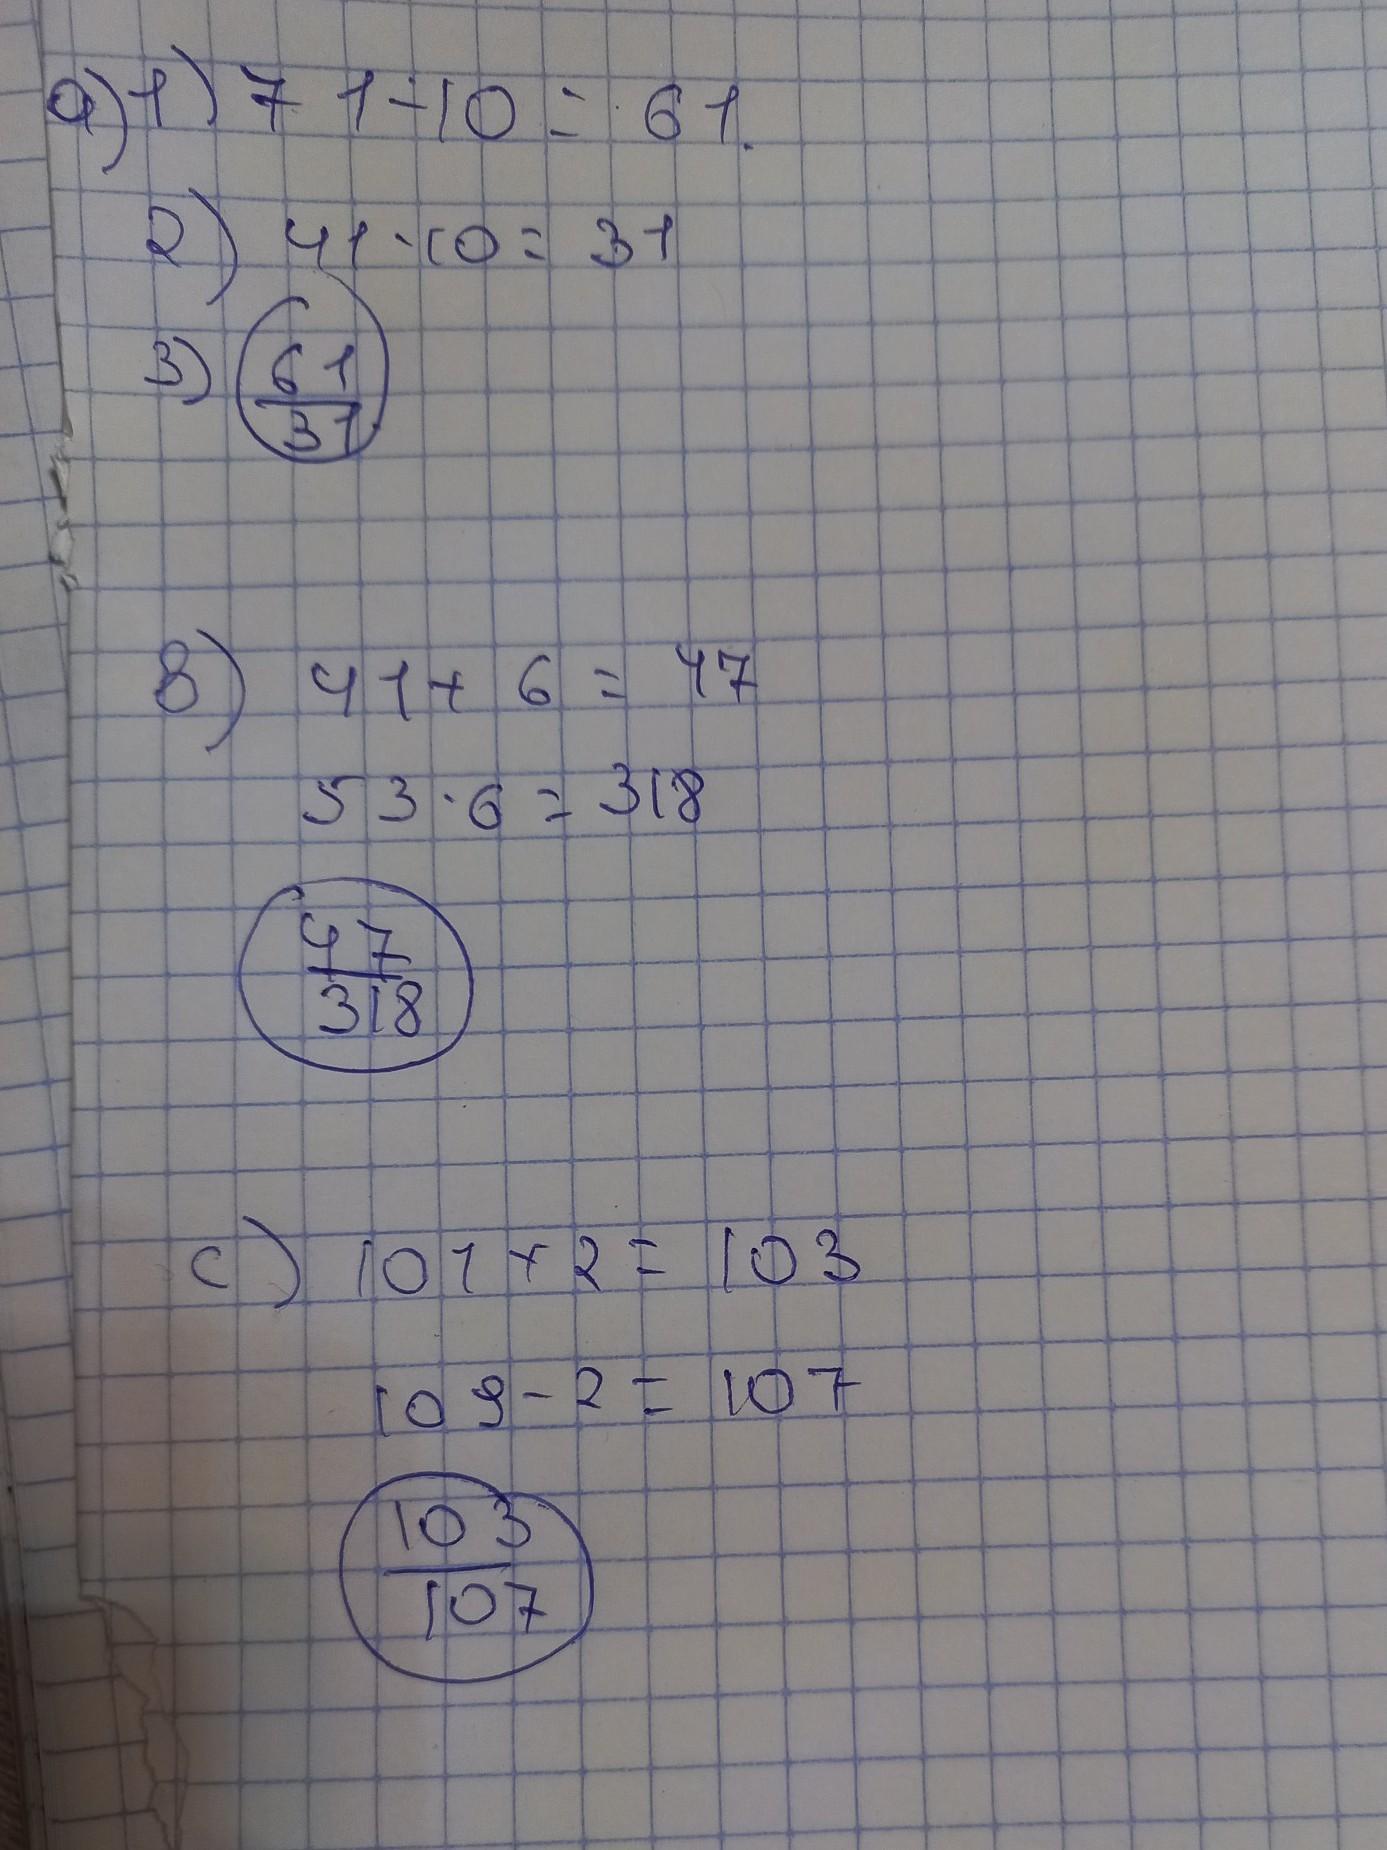 a) 1) 71-10 = 61.
2) 41-10 = 31
3) 61/31
B) 41+ 6 = 47
53·6 = 318
47/318
c) 101+2 = 103
109-2 = 107
103/107